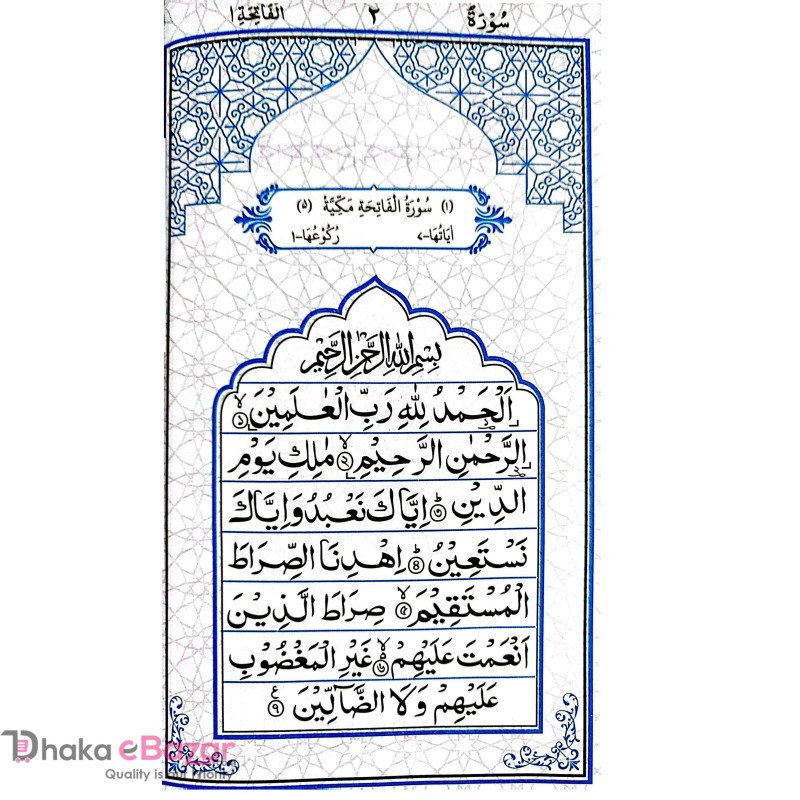 سُوْرَةٌ ٢ اَلْفَاتِحَةِ ١
(١) سُوْرَةُ الْفَاتِحَةِ مَكِّيَّةٌ (٥)
اٰيَاتُهَا-٧ رُكُوْعُهَا-١
بِسْمِ اللهِ الرَّحْمٰنِ الرَّحِيْمِ
اَلْحَمْدُ لِلّٰهِ رَبِّ الْعٰلَمِيْنَ ۙ﴿١﴾
الرَّحْمٰنِ الرَّحِيْمِ ۙ﴿٢﴾ مٰلِكِ يَوْمِ
الدِّيْنِ ؕ﴿٣﴾ اِيَّاكَ نَعْبُدُ وَاِيَّاكَ
نَسْتَعِيْنُ ؕ﴿٤﴾ اِهْدِنَا الصِّرَاطَ
الْمُسْتَقِيْمَ ۙ﴿٥﴾ صِرَاطَ الَّذِيْنَ
اَنْعَمْتَ عَلَيْهِمْ ۙ﴿٦﴾ غَيْرِ الْمَغْضُوْبِ
عَلَيْهِمْ وَلَا الضَّآلِّيْنَ ﴿٧﴾ ع
Dhaka eBazar
Quality is our Priority